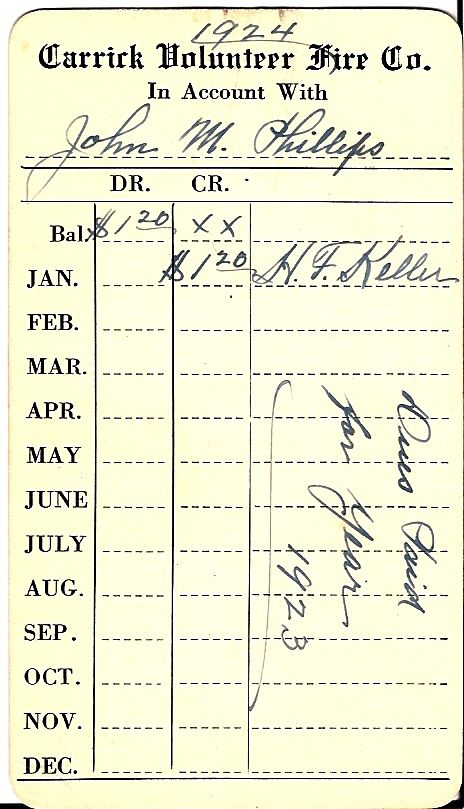 1924
Carrick Volunteer Fire Co.
In Account With
John M. Phillips
DR. CR.
Bal. $1 20 x x
JAN. $1 20 H. F. Keller
FEB.
MAR.
APR.
MAY
JUNE
JULY
AUG.
SEP.
OCT.
NOV.
DEC.
Dues Paid
for Year
1923